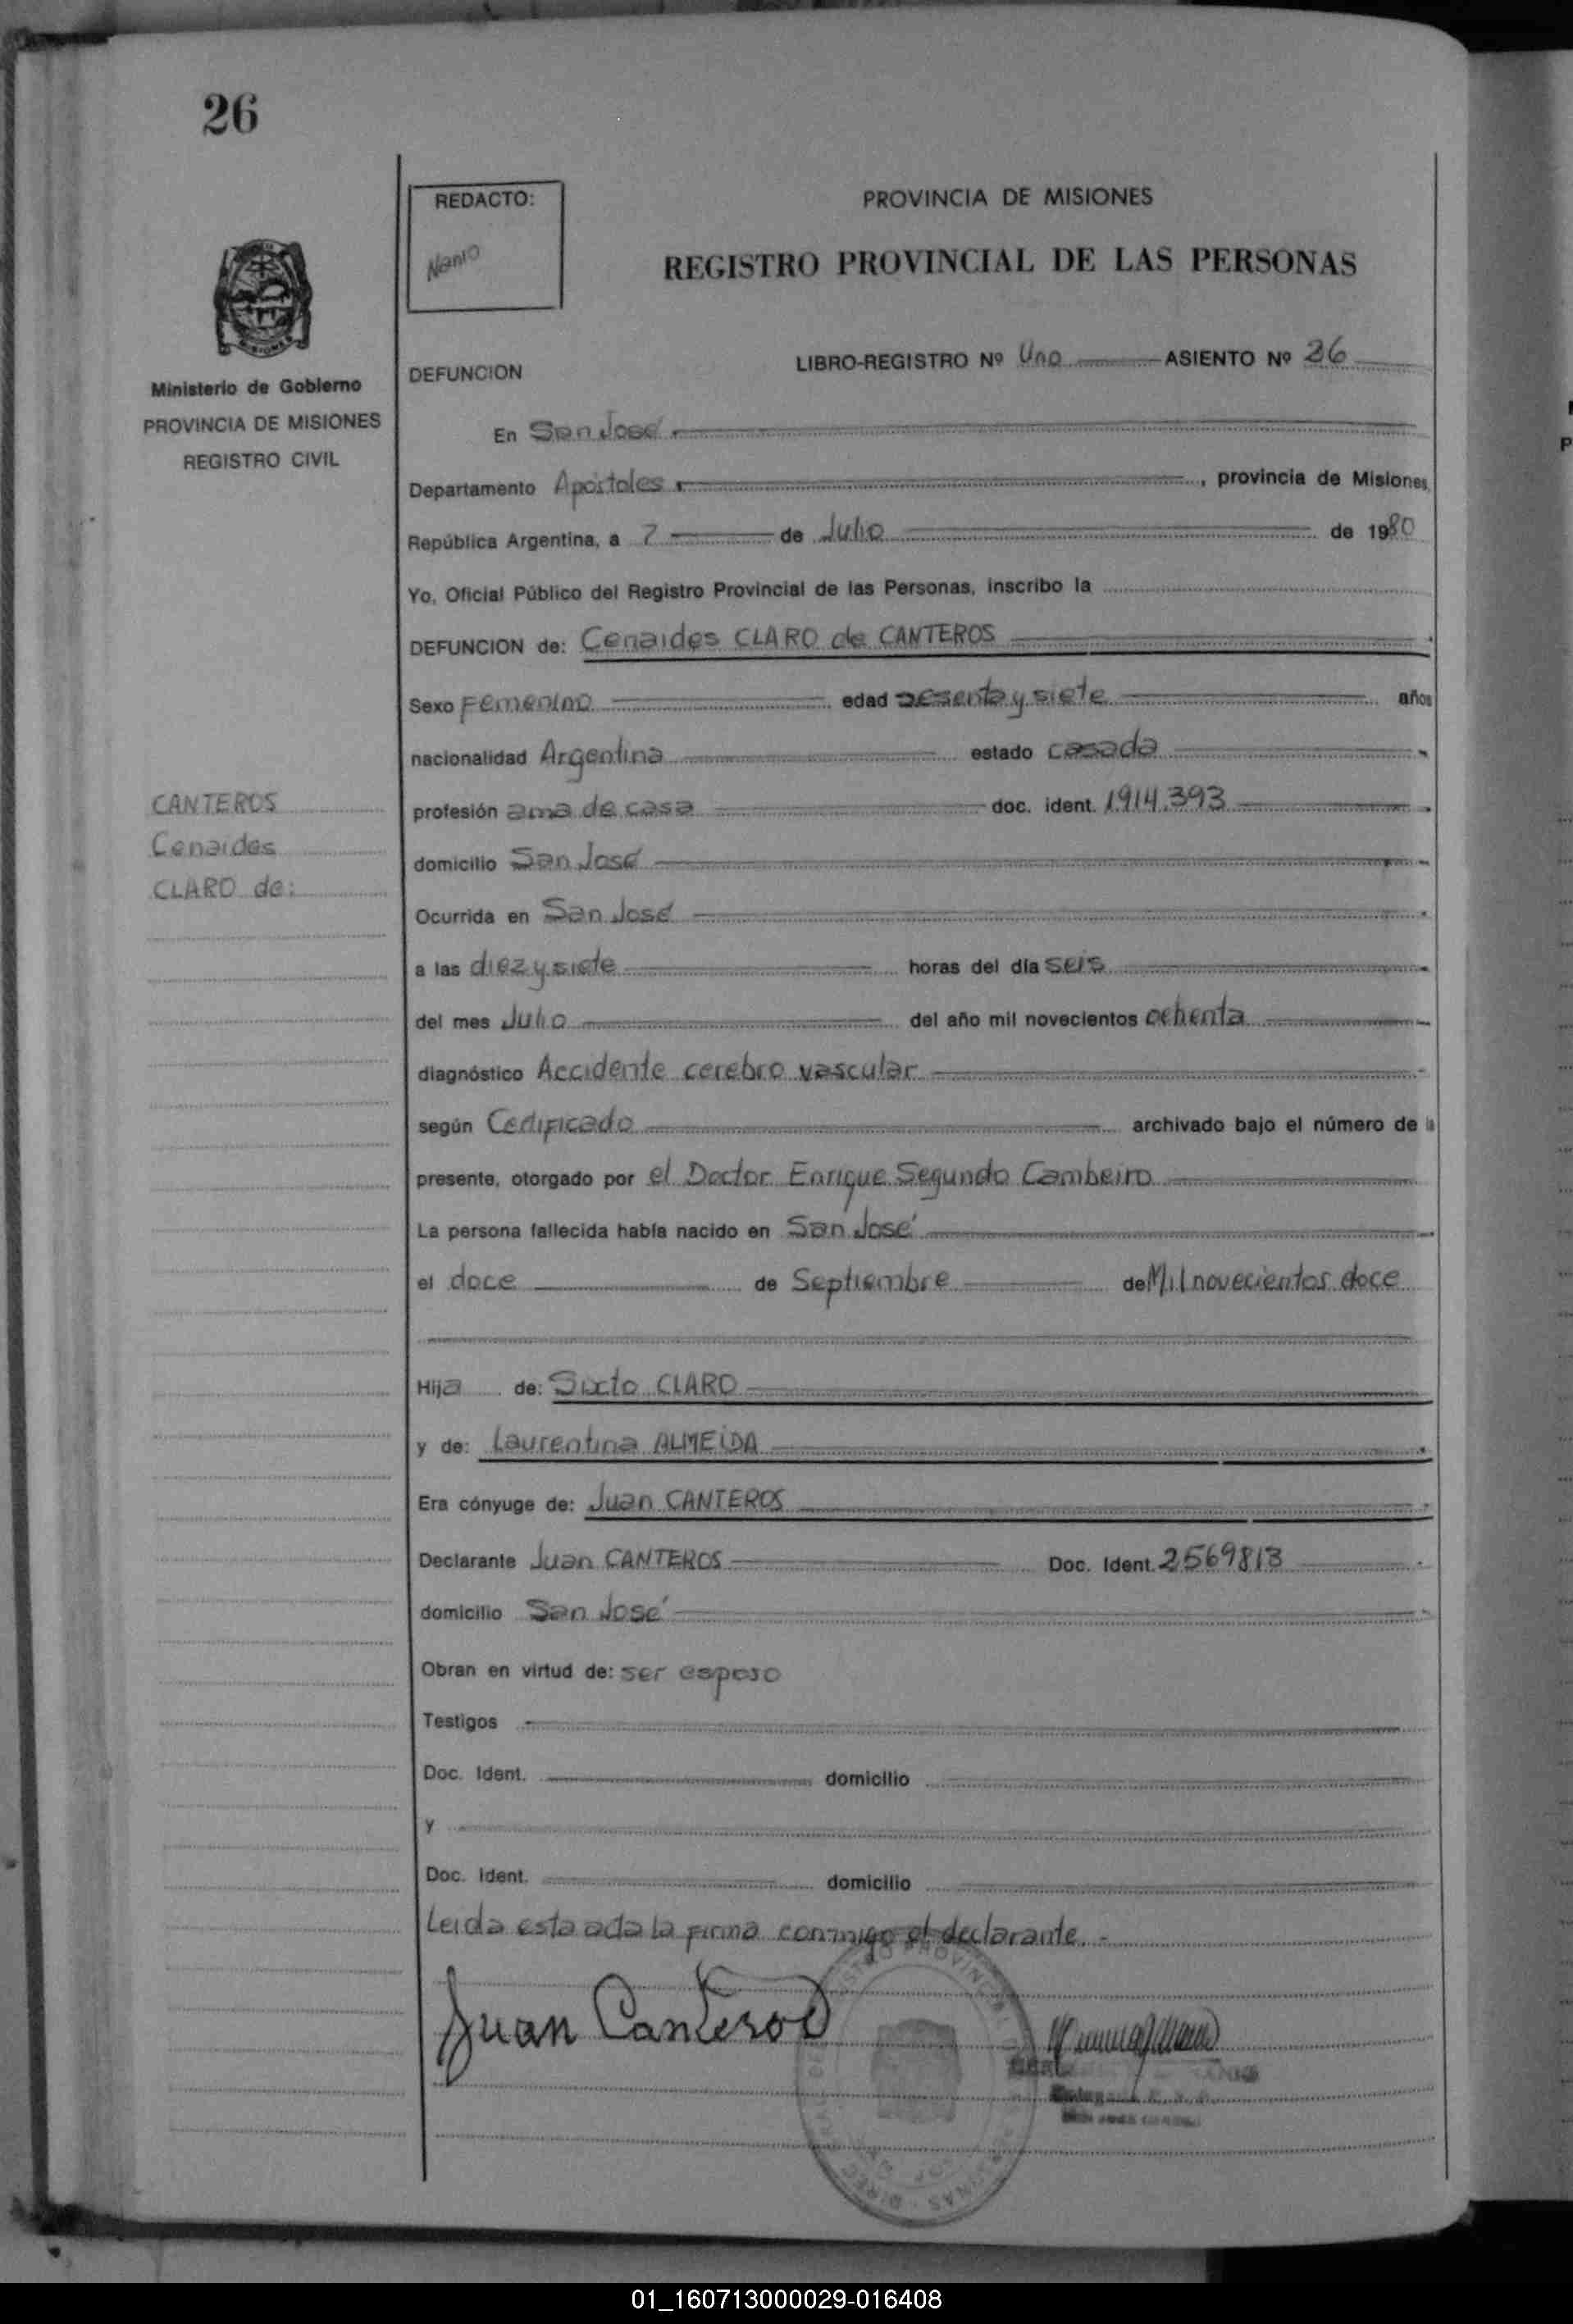 26
REDACTO:
Nanio
PROVINCIA DE MISIONES
REGISTRO PROVINCIAL DE LAS PERSONAS
MISIONES
Ministerio de Gobierno
PROVINCIA DE MISIONES
REGISTRO CIVIL
DEFUNCION
LIBRO-REGISTRO Nº Uno ASIENTO Nº 26
En San José
Departamento Apóstoles, provincia de Misiones,
República Argentina, a 7 de Julio de 1980
Yo, Oficial Público del Registro Provincial de las Personas, inscribo la
DEFUNCION de: Cenaides CLARO de CANTEROS
Sexo Femenino edad sesenta y siete años
nacionalidad Argentina estado casada
CANTEROS
Cenaides
CLARO de:
profesión ama de casa doc. ident. 1914.393
domicilio San José
Ocurrida en San José
a las diez y siete horas del día seis
del mes Julio del año mil novecientos ochenta
diagnóstico Accidente cerebro vascular
según Certificado archivado bajo el número de la
presente, otorgado por el Doctor Enrique Segundo Cambeiro
La persona fallecida había nacido en San José
el doce de Septiembre de Mil novecientos doce
Hija de: Sixto CLARO
y de: Laurentina ALMEIDA
Era cónyuge de: Juan CANTEROS
Declarante Juan CANTEROS Doc. Ident. 2569813
domicilio San José
Obran en virtud de: ser esposo
Testigos
Doc. Ident. domicilio
y
Doc. Ident. domicilio
Leida esta acta la firma conmigo el declarante.-
Juan Canteros
01_160713000029-016408